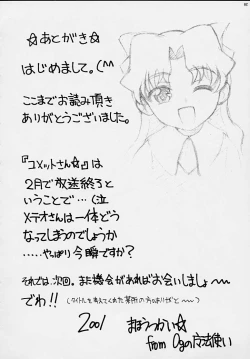 ☆あとがき☆
はじめまして。(^^
ここまでお読み頂き
ありがとうございました。
『コメットさん☆』は
2月で放送終了と
いうことで…(泣
メテオさんは一体どう
なってしまうのでしょうか
.....やっぱり今瞬ですか?
それでは、次回。また機会があればお会いしましょ〜
でわ!!
2001 まほうつかい☆
from Ogの魔法使い